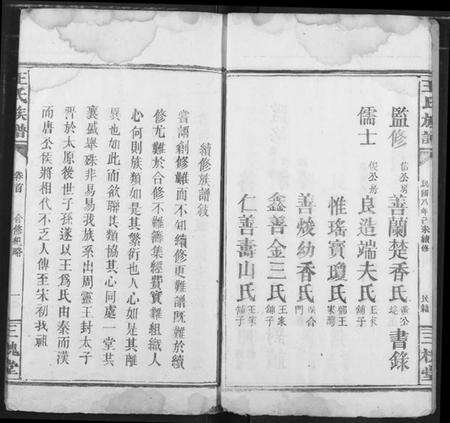 王氏族譜
民國八年己未續修
三槐堂
監修
善蘭楚香氏
書錄
儒士
良造端夫氏
惟瑤寶瓊氏
善焌幼香氏
鑫善金三氏
仁善壽山氏
王氏族譜
卷首
合修紀略
一
三槐堂
續修族譜敘
嘗謂創修難而不知續修更難譜既難於續
修尤難於合修不難籌集經費實難組織人
心何則族類如是其繁衍也人心如是其渙
也如此而欲聯其類協其心同處一堂共
襄盛舉殊非易易我族系出周靈王封太子
晉於太原後世子孫遂以王為氏由秦而漢
而唐公侯將相代不乏人傳至宋初我祖